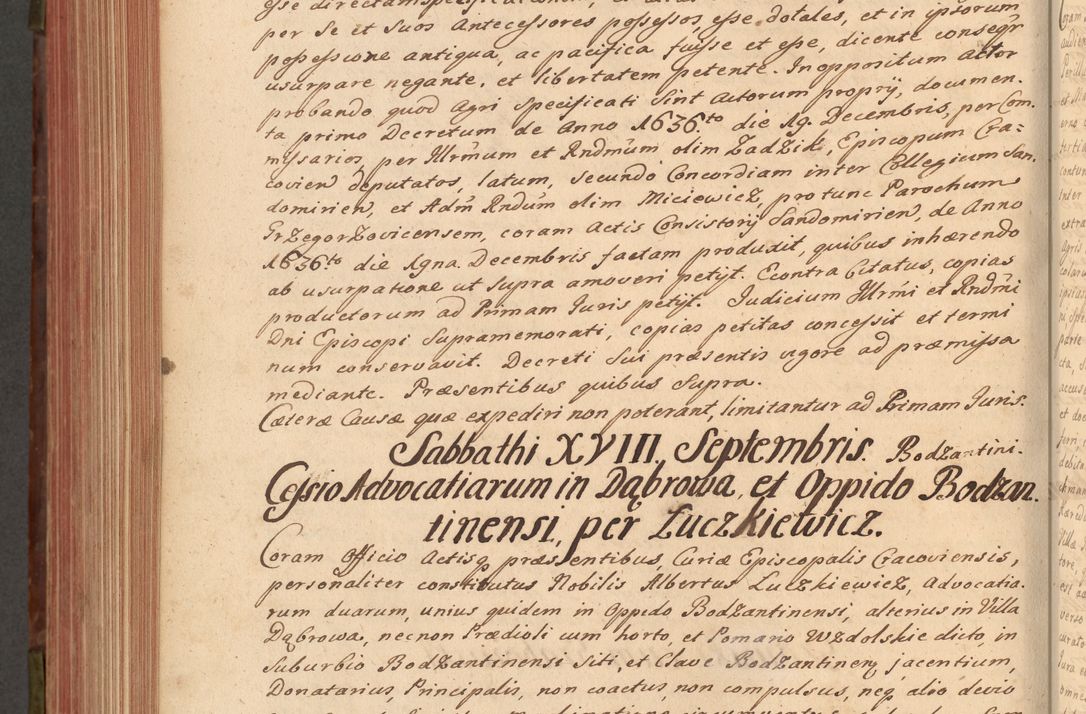 per Se et Suos Antecessores possessos esse dotales, et in ipsorum
possessione antiqua, ac pacifica fuisse et esse, dicente conseqr
usurpare negante, et libertatem petente. In oppositum Actor
probando quod Agri specificati Sint Actorum proprij, documen-
ta primo Decretum de Anno 1636.to die 19. Decembris, per Com-
missarios, per Illrmum et Rndmum olim Zadzik, Episcopum Cra=
covien deputatos, latum, secundo Concordiam inter Collegium San-
domirien, et Adm Rndum olim Miciewicz, pro tunc Parochum
Grzegorzovicensem, coram Actis Consistorij Sandomirien, de Anno
1636.to die 19na. Decembris factam produxit, quibus inhærendo
ab usurpatione ut Supra amoveri petijt. Econtra Citatus, copias
productorum ad Primam Juris petijt. Judicium Illrmi et Rndmi
Dni Episcopi Supramemorati, copias petitas concessit et termi
num conservavit. Decreti Sui præsentis vigore ad præmissa
mediante. Præsentibus quibus Supra.
Cæteræ Causæ quæ expediri non poterant, limitantur ad Primam Juris.
Sabbathi XVIII. Septembris. Bodzantini.
Cessio Advocatiarum in Dąbrowa, et Oppido Bodzan.
tinensi, per Łuczkiewicz.
Coram Officio Actisq præsentibus, Curiæ Episcopalis Cracoviensis,
personaliter constitutus Nobilis Albertus Łuczkiewicz, Advocatia-
rum duarum, unius quidem in Oppido Bodzantinensi, alterius in Villa
Dąbrowa, necnon Prædioli cum horto, et Pomario Wzdolskie dicto, in
Suburbio Bodzantinensi Siti, et Clave Bodzantinen, jacentium,
Donatarius Principalis, non coactus, non compulsus, neq alio devio